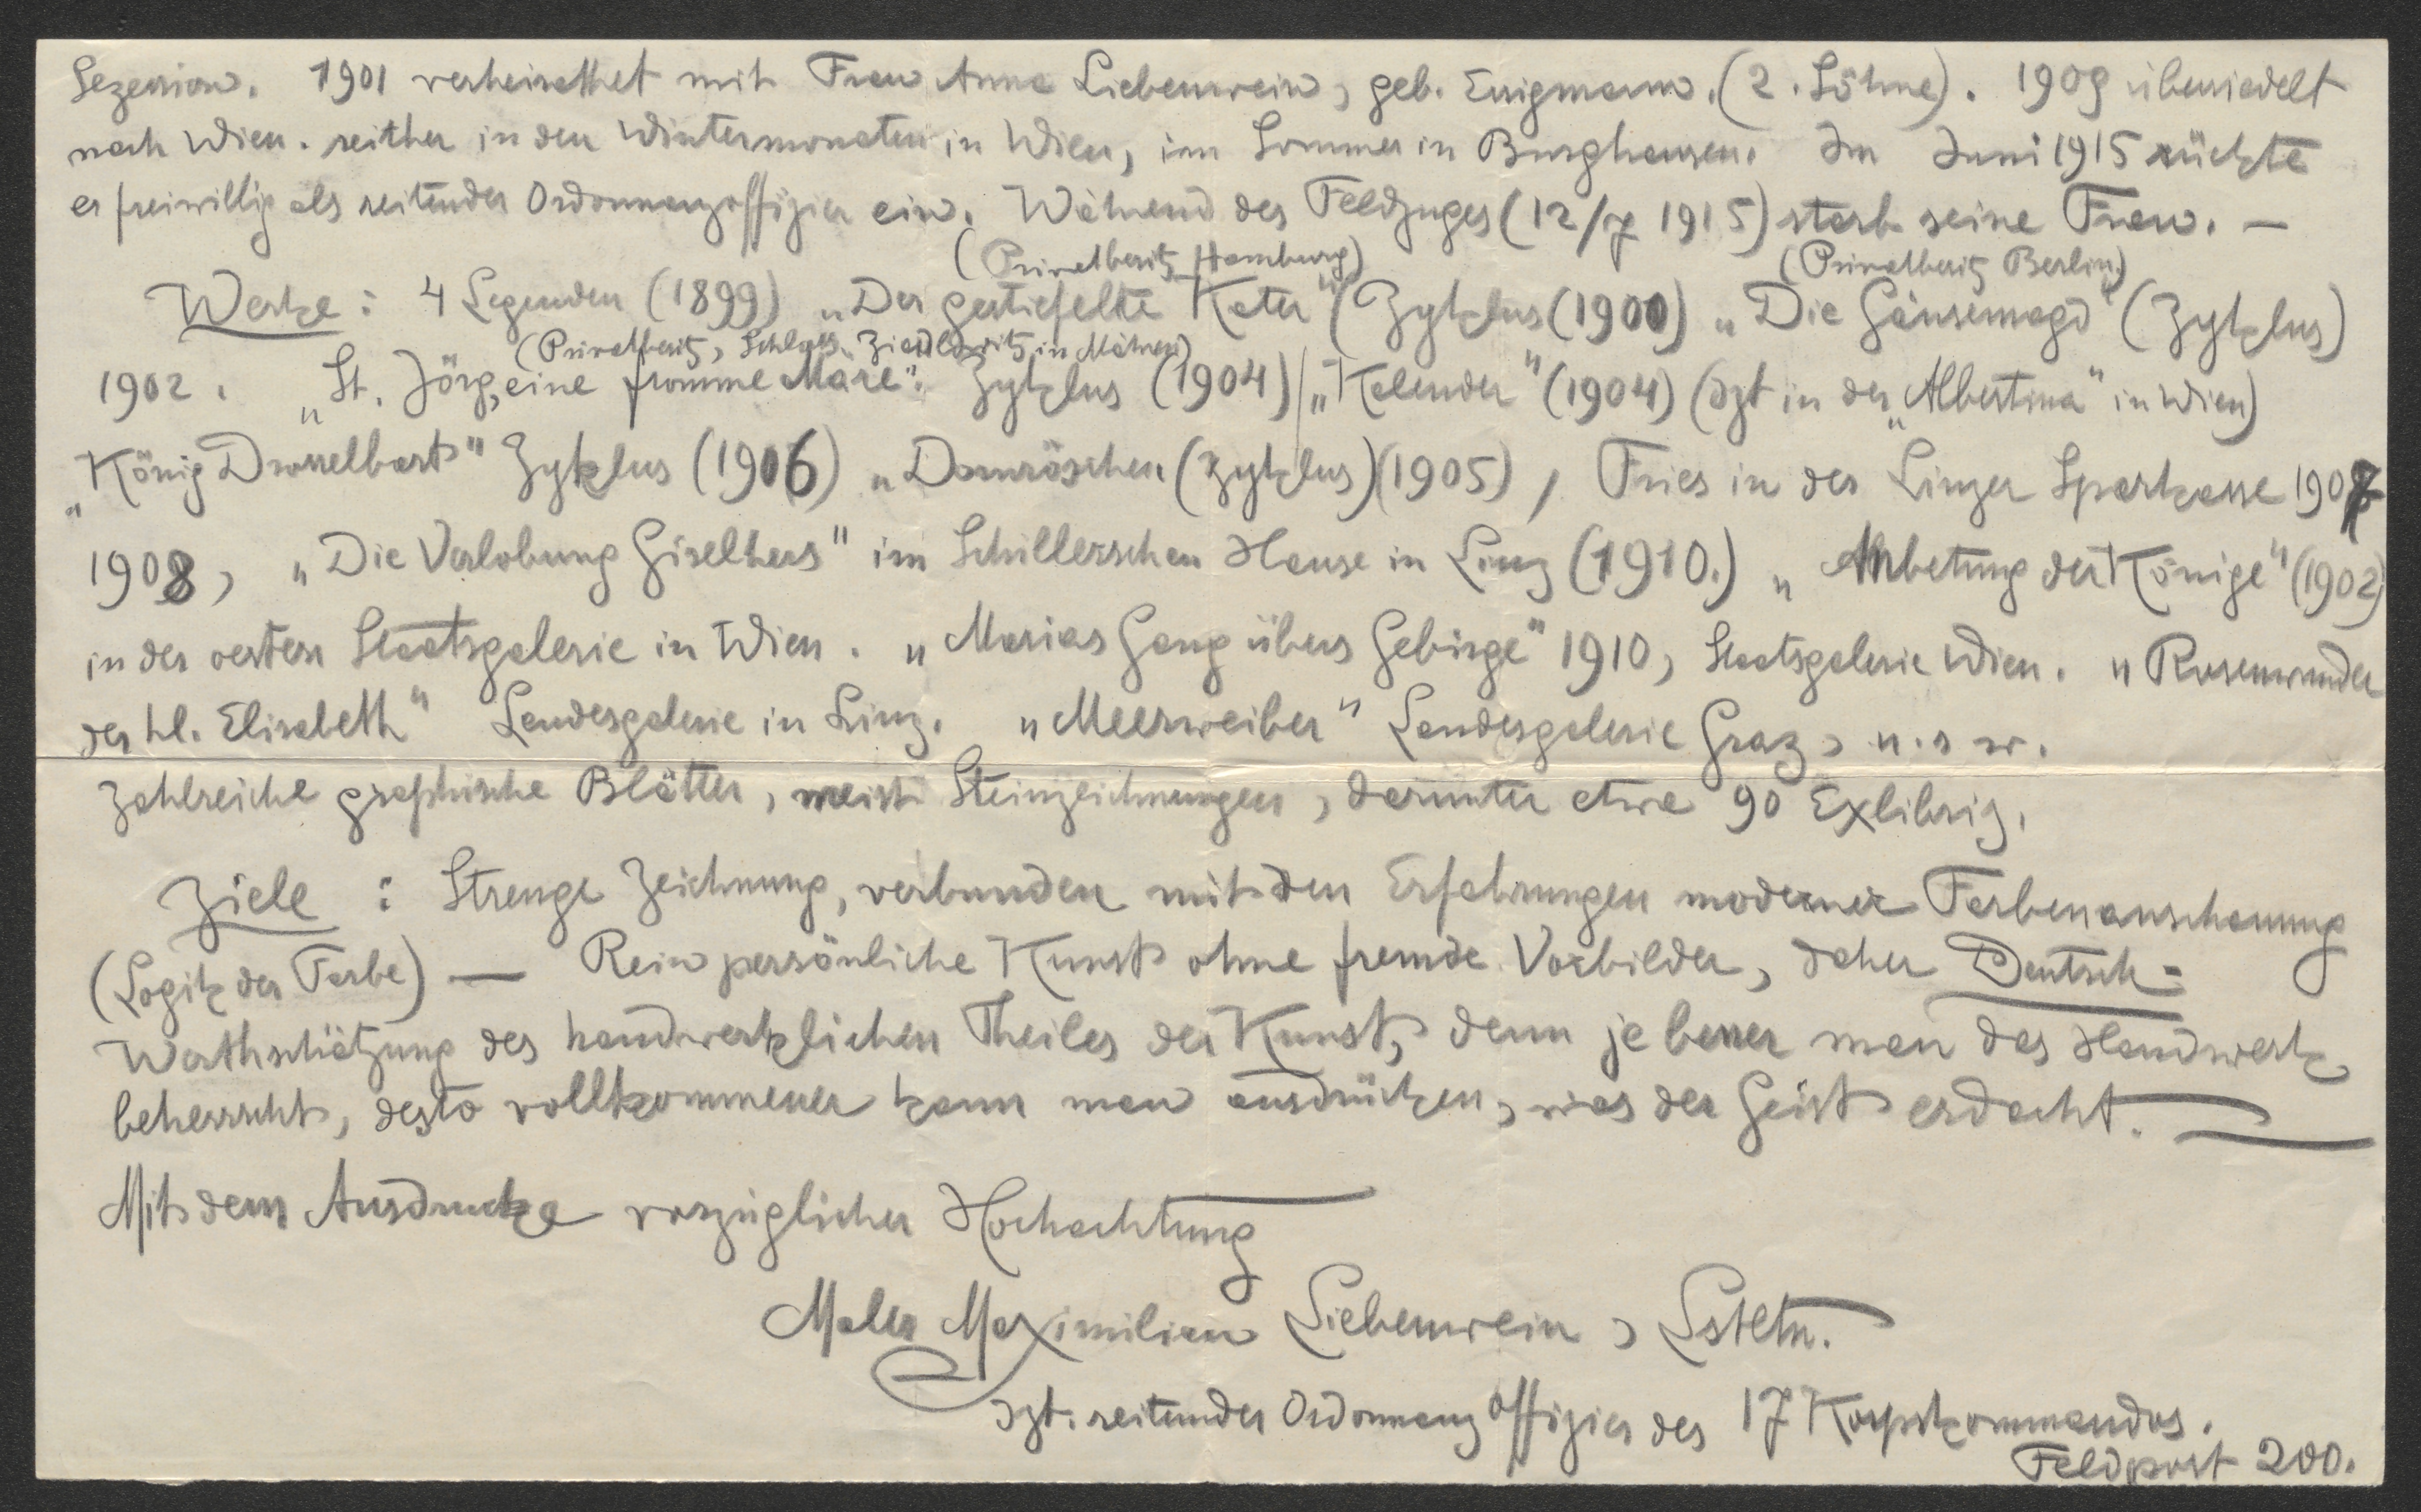 Sezession. 1901 verheirathet mit Frau Anna Liebenwein, geb. Essigmann. (2. Söhne). 1909 übersiedelt
nach Wien. seither in den Wintermonaten in Wien, im Sommer in Burghausen. Im Juni 1915 rückte
er freiwillig als reitender Ordonnanzoffizier ein. Während des Feldzuges (12/7 1915) starb seine Frau. —
(Privatbesitz Hamburg) (Privatbesitz Berlin)
Werke: 4 Legenden (1899) „Der gestiefelte Kater" (Zyklus (1900) „Die Gänsemagd" (Zyklus)
(Privatbesitz, Schloss in Mähren)
1902. „St. Jörg, eine fromme Märe". Zyklus (1904) / „Kalender" (1904) (dzt in der „Albertina" in Wien)
„König Drosselbart" Zyklus (1906) „Dornröschen (Zyklus) (1905), Fries in der Linzer Sparkasse 1907
1908, „Die Verlobung Giselhers" im Schillerschen Hause in Linz (1910.) „Anbetung der Könige" (1902)
in der oesterr Staatsgalerie in Wien. „Marias Gang übers Gebirge" 1910, Staatsgalerie Wien. „Rosenwunder
der hl. Elisabeth" Landesgalerie in Linz. „Meerweiber" Landesgalerie Graz, u. s w.
Zahlreiche graphische Blätter, meist Steinzeichnungen, darunter etwa 90 Exlibris.
Ziele: Strenge Zeichnung, verbunden mit den Erfahrungen moderner Farbenanschauung
(Logik der Farbe) — Rein persönliche Kunst ohne fremde Vorbilder, daher Deutsch=
Werthschätzung des handwerklichen Theiles der Kunst, denn je besser man das Handwerk
beherrscht, desto vollkommener kann man ausdrücken, was der Geist erdacht. —
Mit dem Ausdrucke vorzüglicher Hochachtung
Maler Maximilian Liebenwein, Lstltn.
dzt. reitender Ordonnanzoffizier des 17 Korpskommandos.
Feldpost 200.